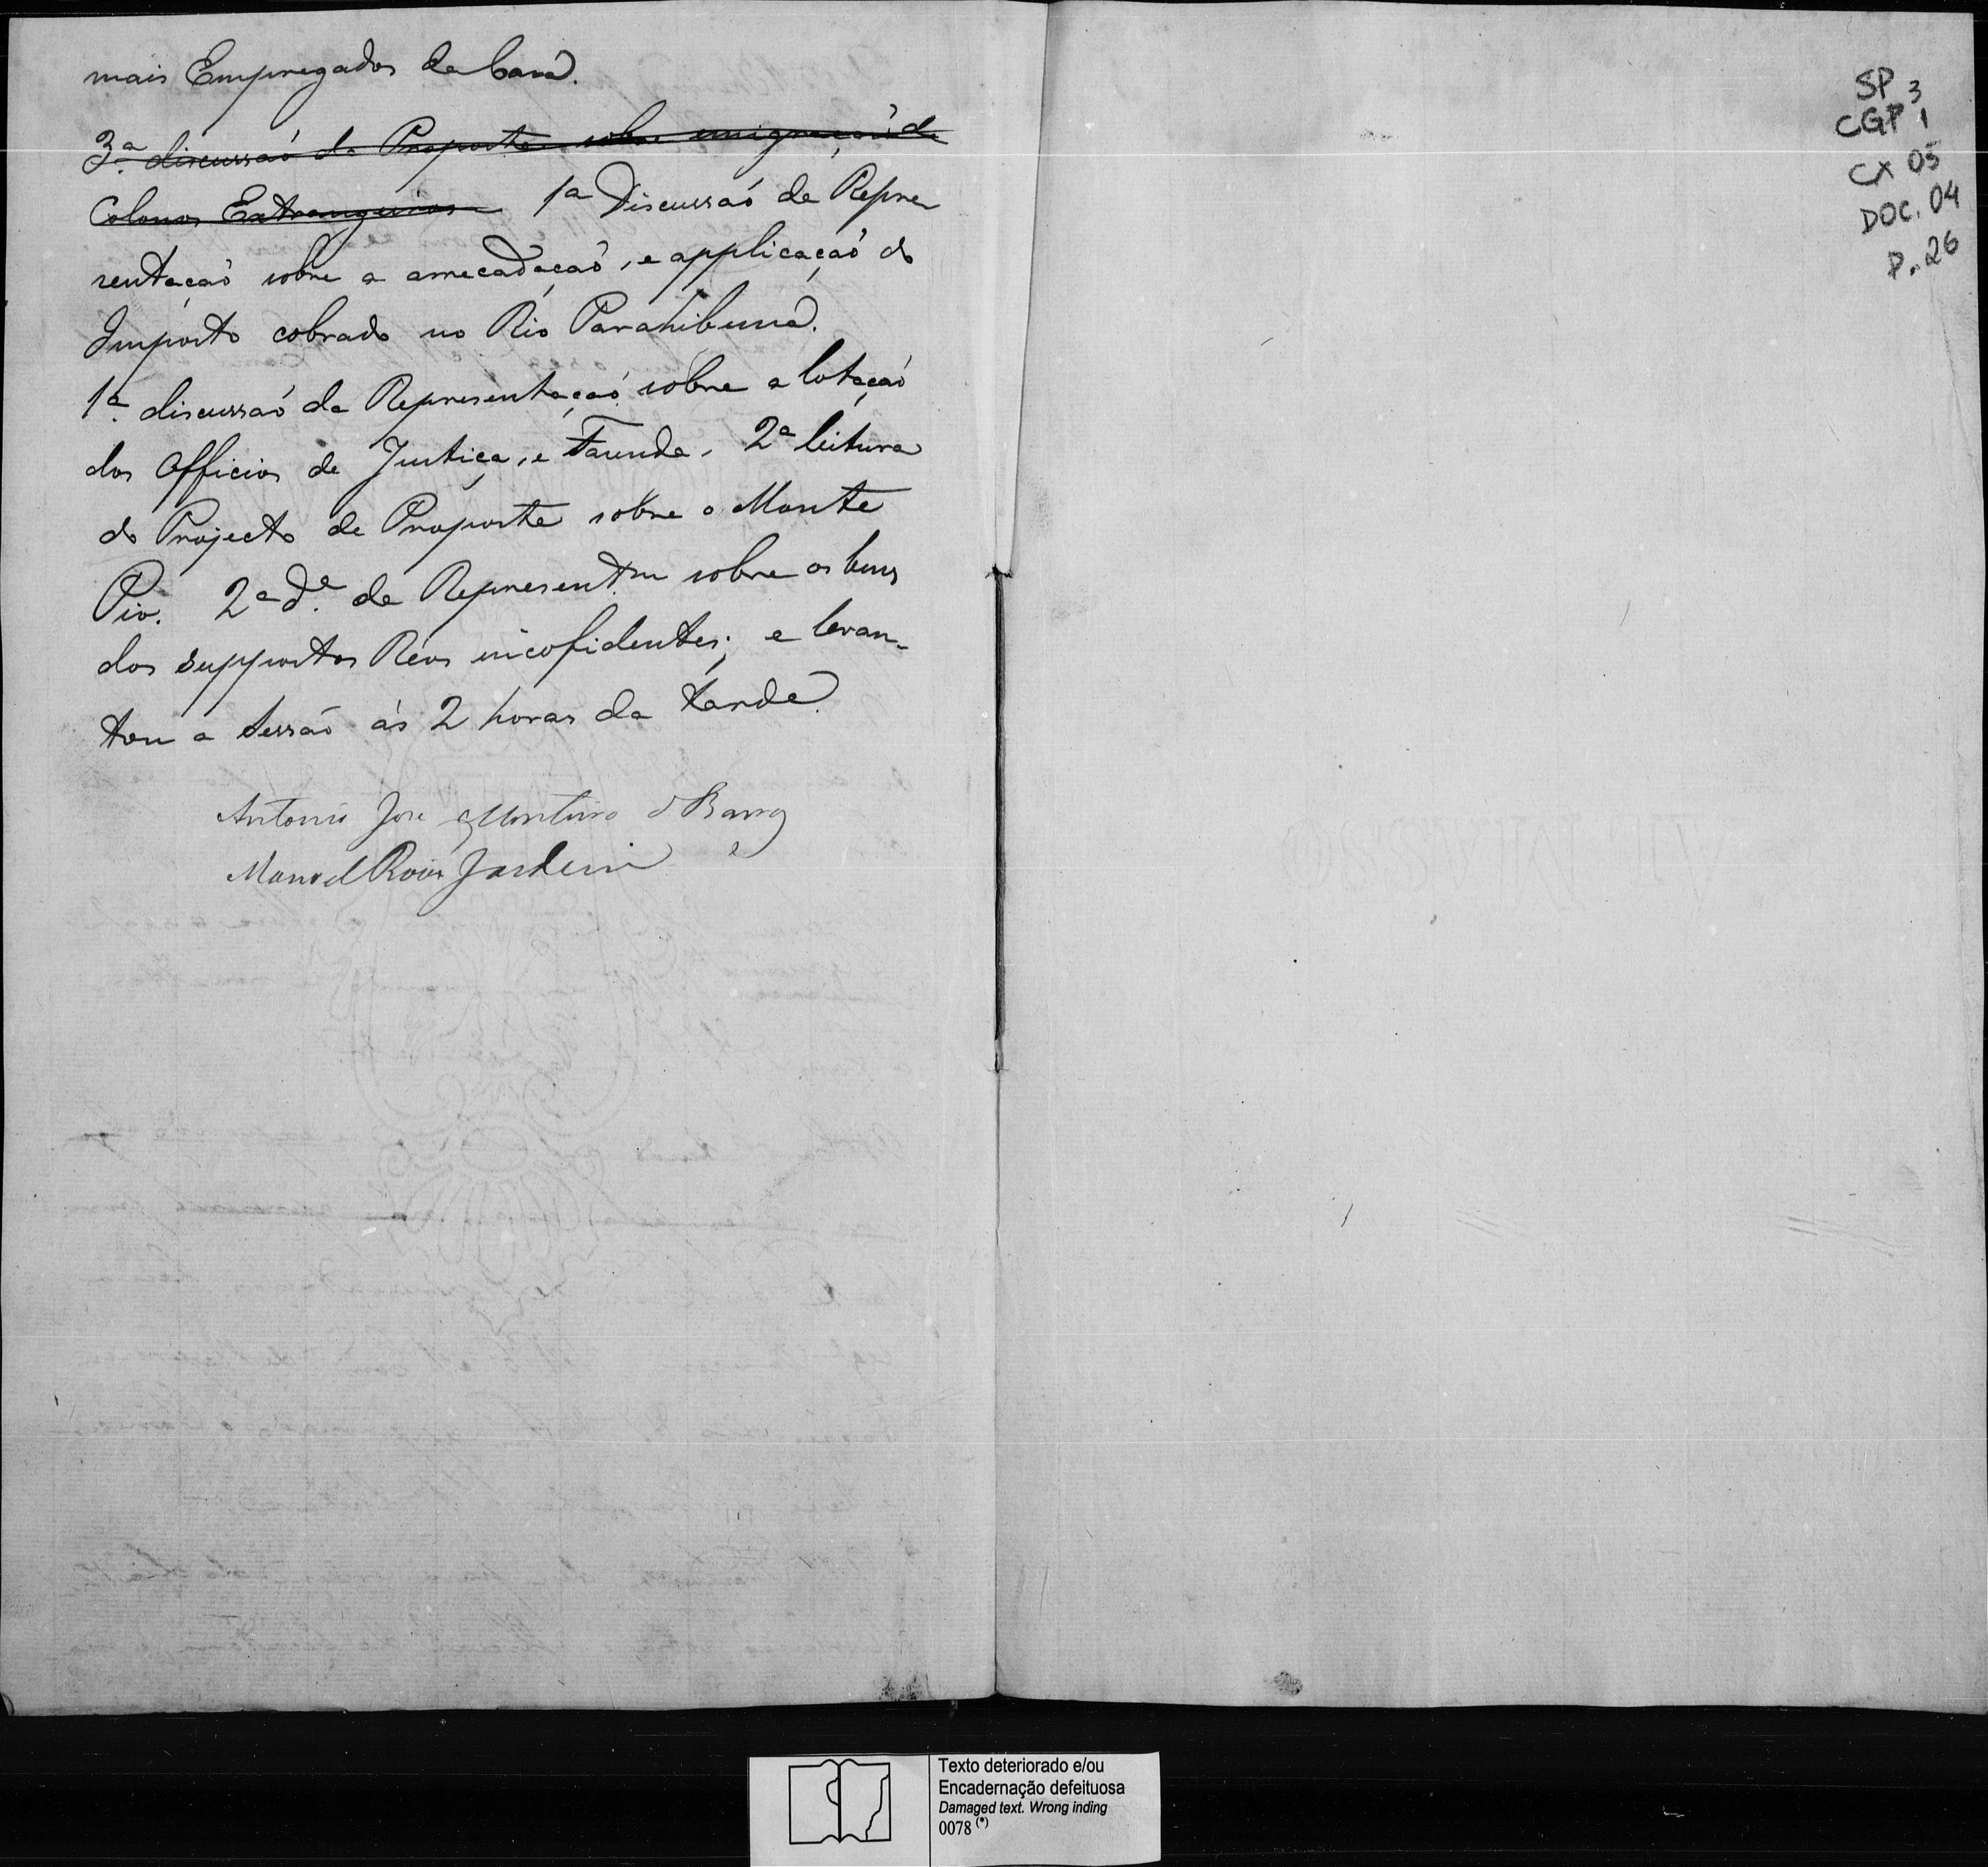 mais Empregados da Casa.
3.ª discussaõ da Proposta sobre emigraçaõ de
Colonos Extrangeiros 1ª Discussaõ da Repre
sentaçaõ sobre a arrecadaçaõ, e applicaçaõ do
Imposto cobrado no Rio Parahibuna.
1ª discussaõ da Representaçaõ sobre a lotaçaõ
dos Officios de Justiça, e Fazenda. 2ª leitura
do Projecto de Proposta sobre o Monte
Pio. 2ª d.ª da Represent.m sobre os bens
dos suppostos Réos inconfidentes; e levan-
tou a Sessão ás 2 horas da tarde.
Antonio Jose Monteiro d Barros
Manoel Roiz Jardim
SP
CGP 3
1
CX 05
DOC. 04
P. 26
Texto deteriorado e/ou
Encadernação defeituosa
Damaged text. Wrong inding
0078 (*)